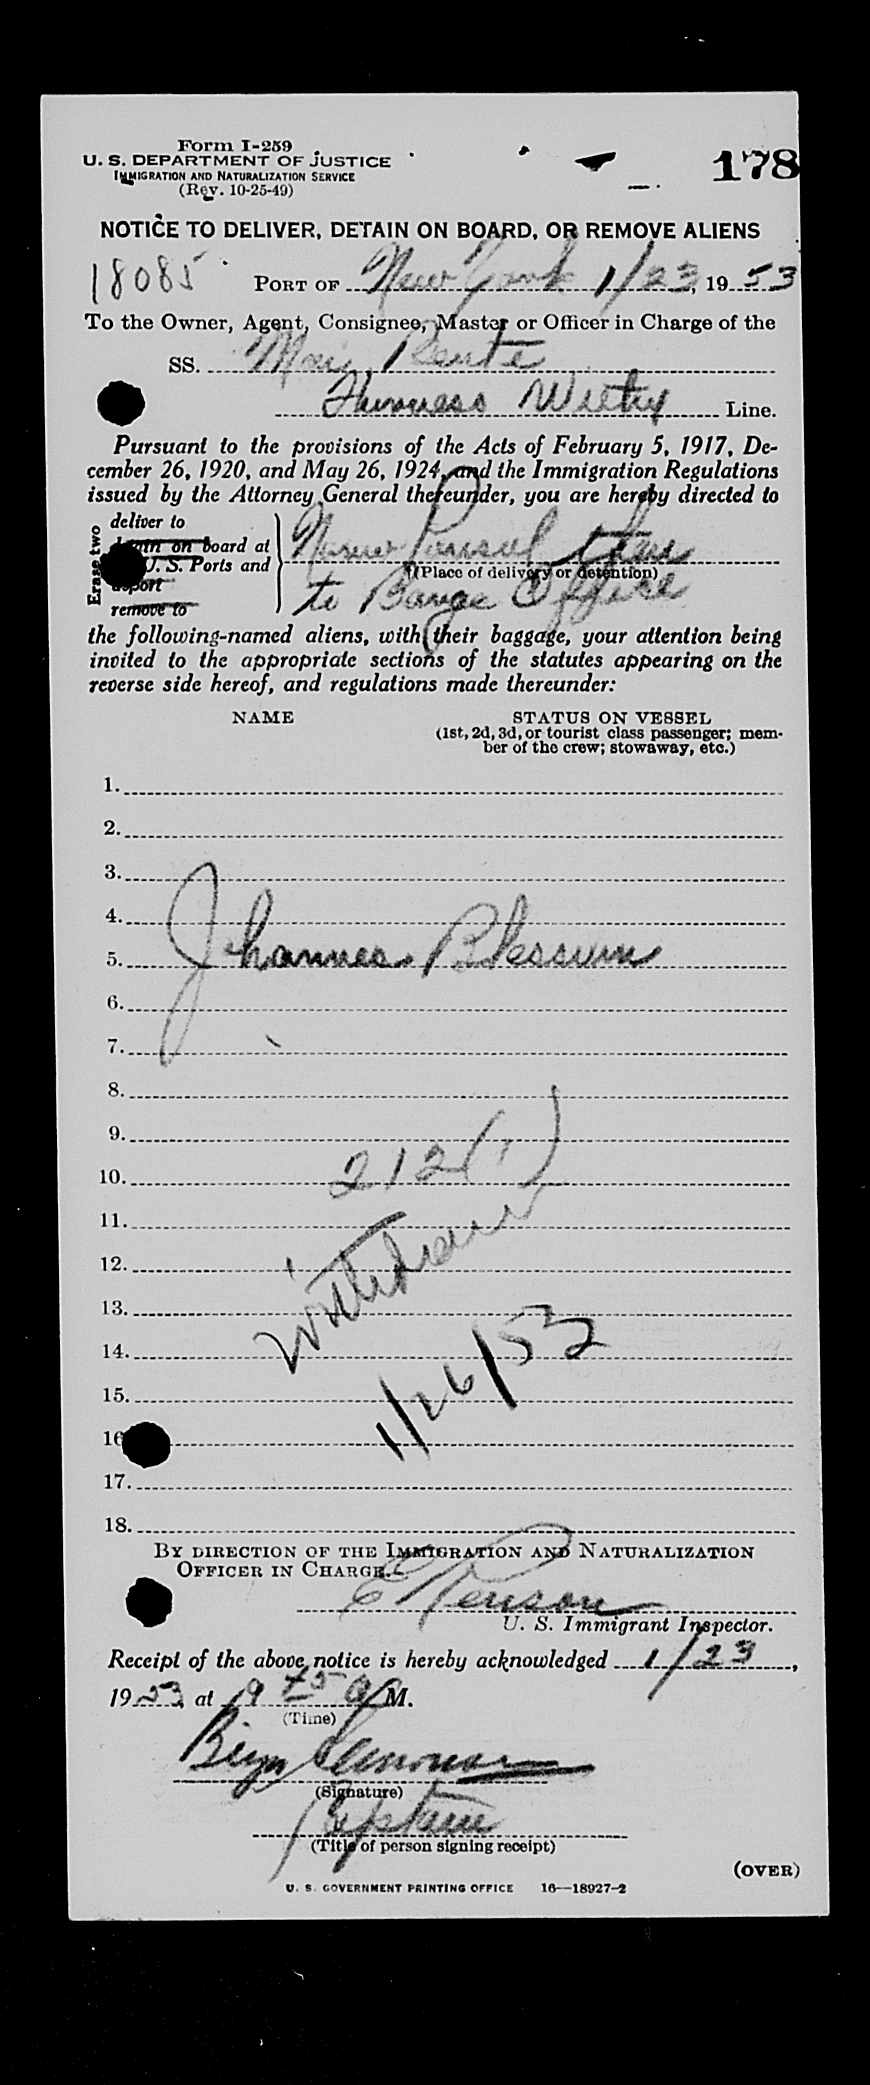 Form I-259
U. S. DEPARTMENT OF JUSTICE
IMMIGRATION AND NATURALIZATION SERVICE
(Rev. 10-25-49)
178
NOTICE TO DELIVER, DETAIN ON BOARD, OR REMOVE ALIENS
18085 PORT OF New York 1/23, 1953
To the Owner, Agent, Consignee, Master or Officer in Charge of the
SS.
Furness Withy Line.
Pursuant to the provisions of the Acts of February 5, 1917, De-
cember 26, 1920, and May 26, 1924, and the Immigration Regulations
issued by the Attorney General thereunder, you are hereby directed to
Erase two
deliver to
on board at
U. S. Ports and
remove to
Norw Consul then
(Place of delivery or detention)
to Barge Office
the following-named aliens, with their baggage, your attention being
invited to the appropriate sections of the statutes appearing on the
reverse side hereof, and regulations made thereunder:
NAME STATUS ON VESSEL
(1st, 2d, 3d, or tourist class passenger; mem-
ber of the crew; stowaway, etc.)
1.
2.
3.
4.
5. Johannes
6.
7.
8.
9.
10. 212(1)
11.
12.
13. Withdrawn
14.
15. 1/26/53
16
17.
18.
BY DIRECTION OF THE IMMIGRATION AND NATURALIZATION
OFFICER IN CHARGE.
E
U. S. Immigrant Inspector.
Receipt of the above notice is hereby acknowledged 1/23,
1953, at 9 45 a M.
(Time)
(Signature)
Captain
(Title of person signing receipt)
(OVER)
U. S. GOVERNMENT PRINTING OFFICE 16—18927-2